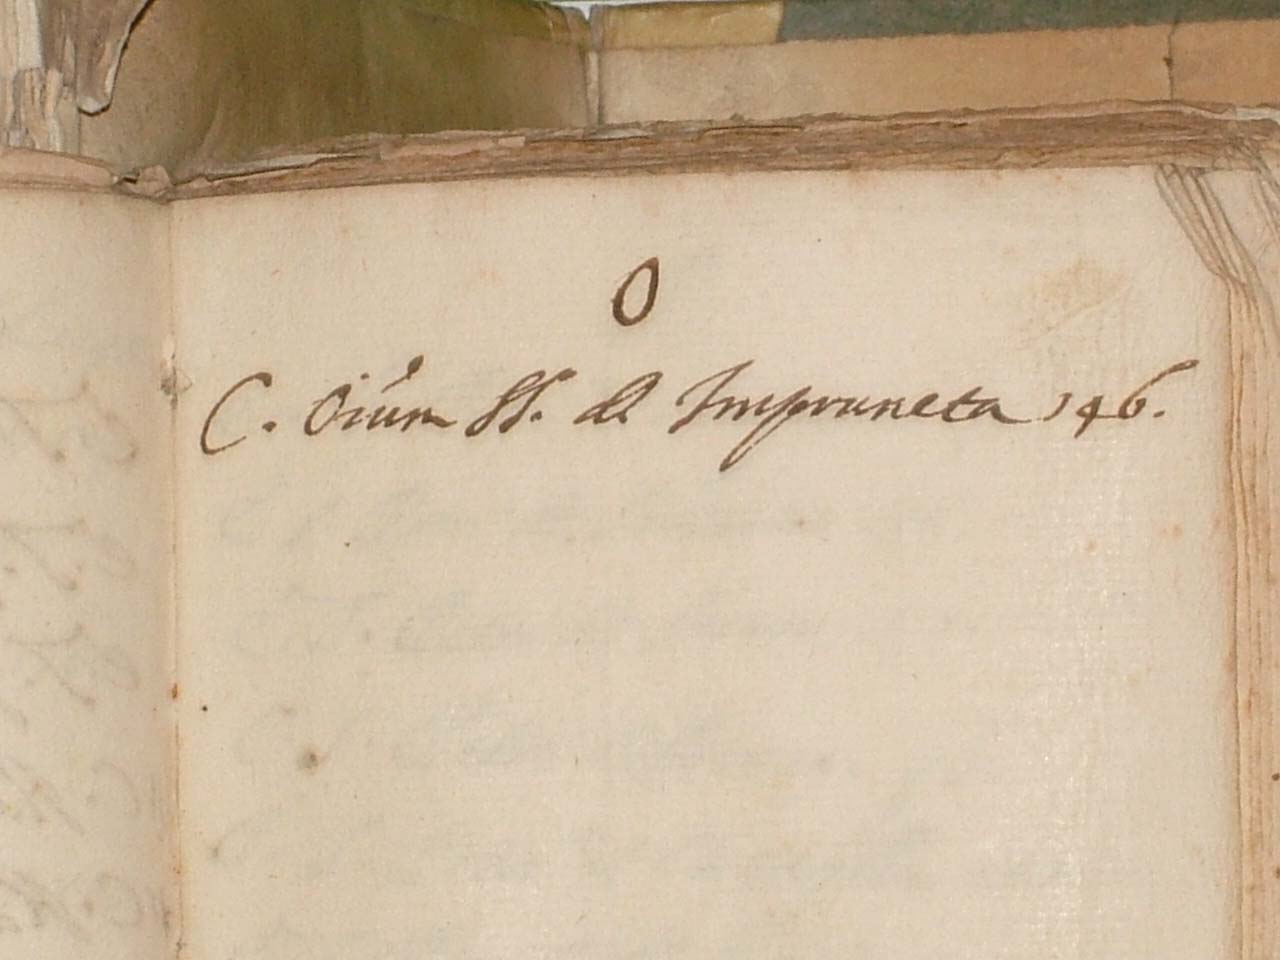 O
C. Oiũm SS. de Impruneta 146.